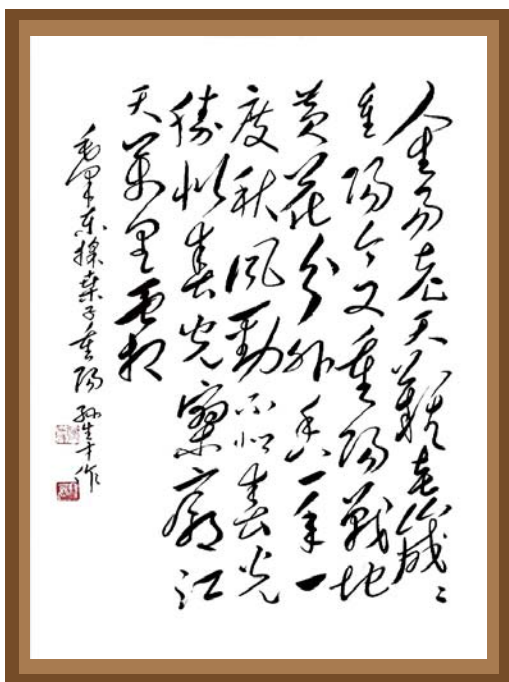 人生易老天難老歲〻
重陽今又重陽戰地
黄花分外香一年一
度秋風勁不似春光
勝似春光寥廓江
天萬里霜
毛澤東採桑子重陽 作